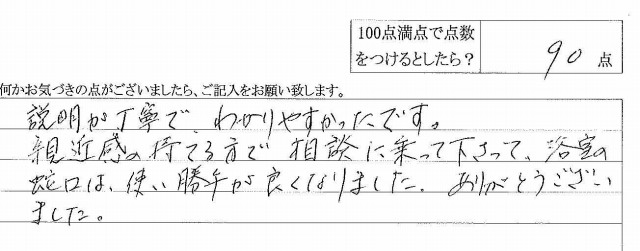 100点満点で点数
をつけるとしたら？
90 点
何かお気づきの点がございましたら、ご記入をお願い致します。
説明が丁寧で、わかりやすかったです。
親近感の持てる方で 相談に乗って下さって、浴室の
蛇口は、使い勝手が良くなりました。ありがとうござい
ました。